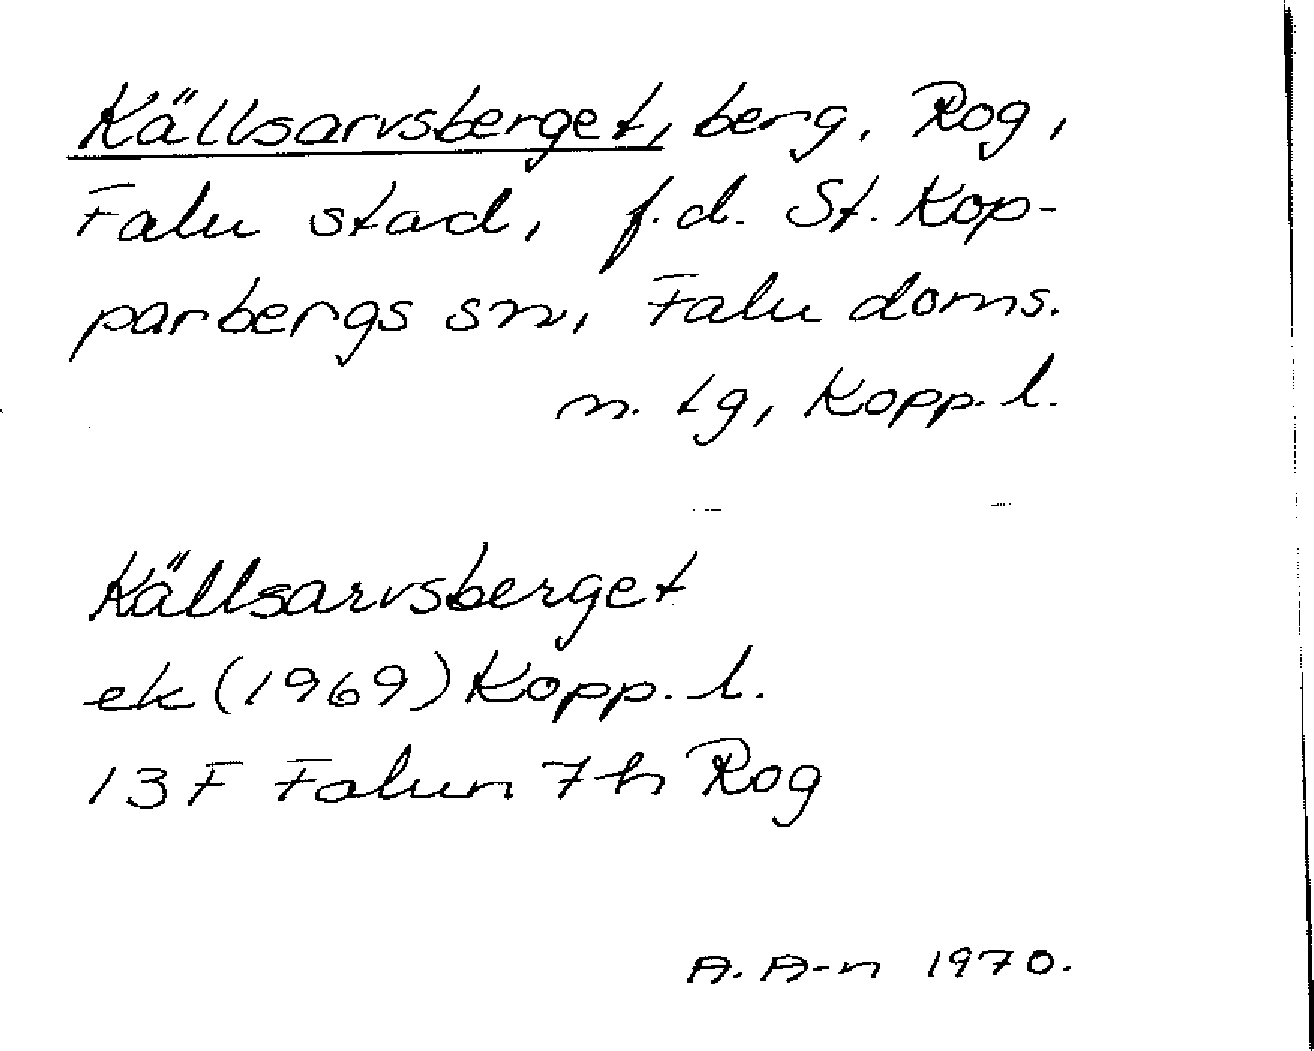 Källsarvsberget, berg, Rog,
Falu stad, f.d. St. Kop-
parbergs sn, Falu doms.
n. tg, Kopp. l.
Källsarvsberget
ek (1969) Kopp. l.
13 F Falun 7 h Rog
A. A-n 1970.